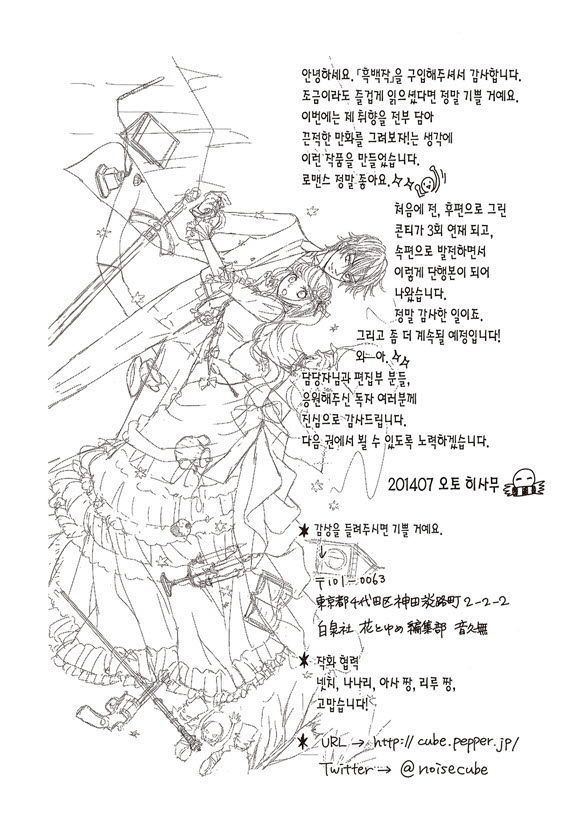 안녕하세요. 「흑백작」을 구입해주셔서 감사합니다.
조금이라도 즐겁게 읽으셨다면 정말 기쁠 거예요.
이번에는 제 취향을 전부 담아
끈적한 만화를 그려보자!는 생각에
이런 작품을 만들었습니다.
로맨스 정말 좋아요.
처음에 전, 후편으로 그린
콘티가 3회 연재 되고,
속편으로 발전하면서
이렇게 단행본이 되어
나왔습니다.
정말 감사한 일이죠.
그리고 좀 더 계속될 예정입니다!
와—아.
담당자님과 편집부 분들,
응원해주신 독자 여러분께
진심으로 감사드립니다.
다음 권에서 뵐 수 있도록 노력하겠습니다.
201407 오토 히사무
★ 감상을 들려주시면 기쁠 거예요.
↓
〒101-0063
東京都千代田区神田淡路町2-2-2
白泉社 花とゆめ編集部 音久無
★ 작화 협력
넷치, 나나리, 아사 짱, 리루 짱,
고맙습니다!
★ URL → http://cube.pepper.jp/
Twitter → @noisecube